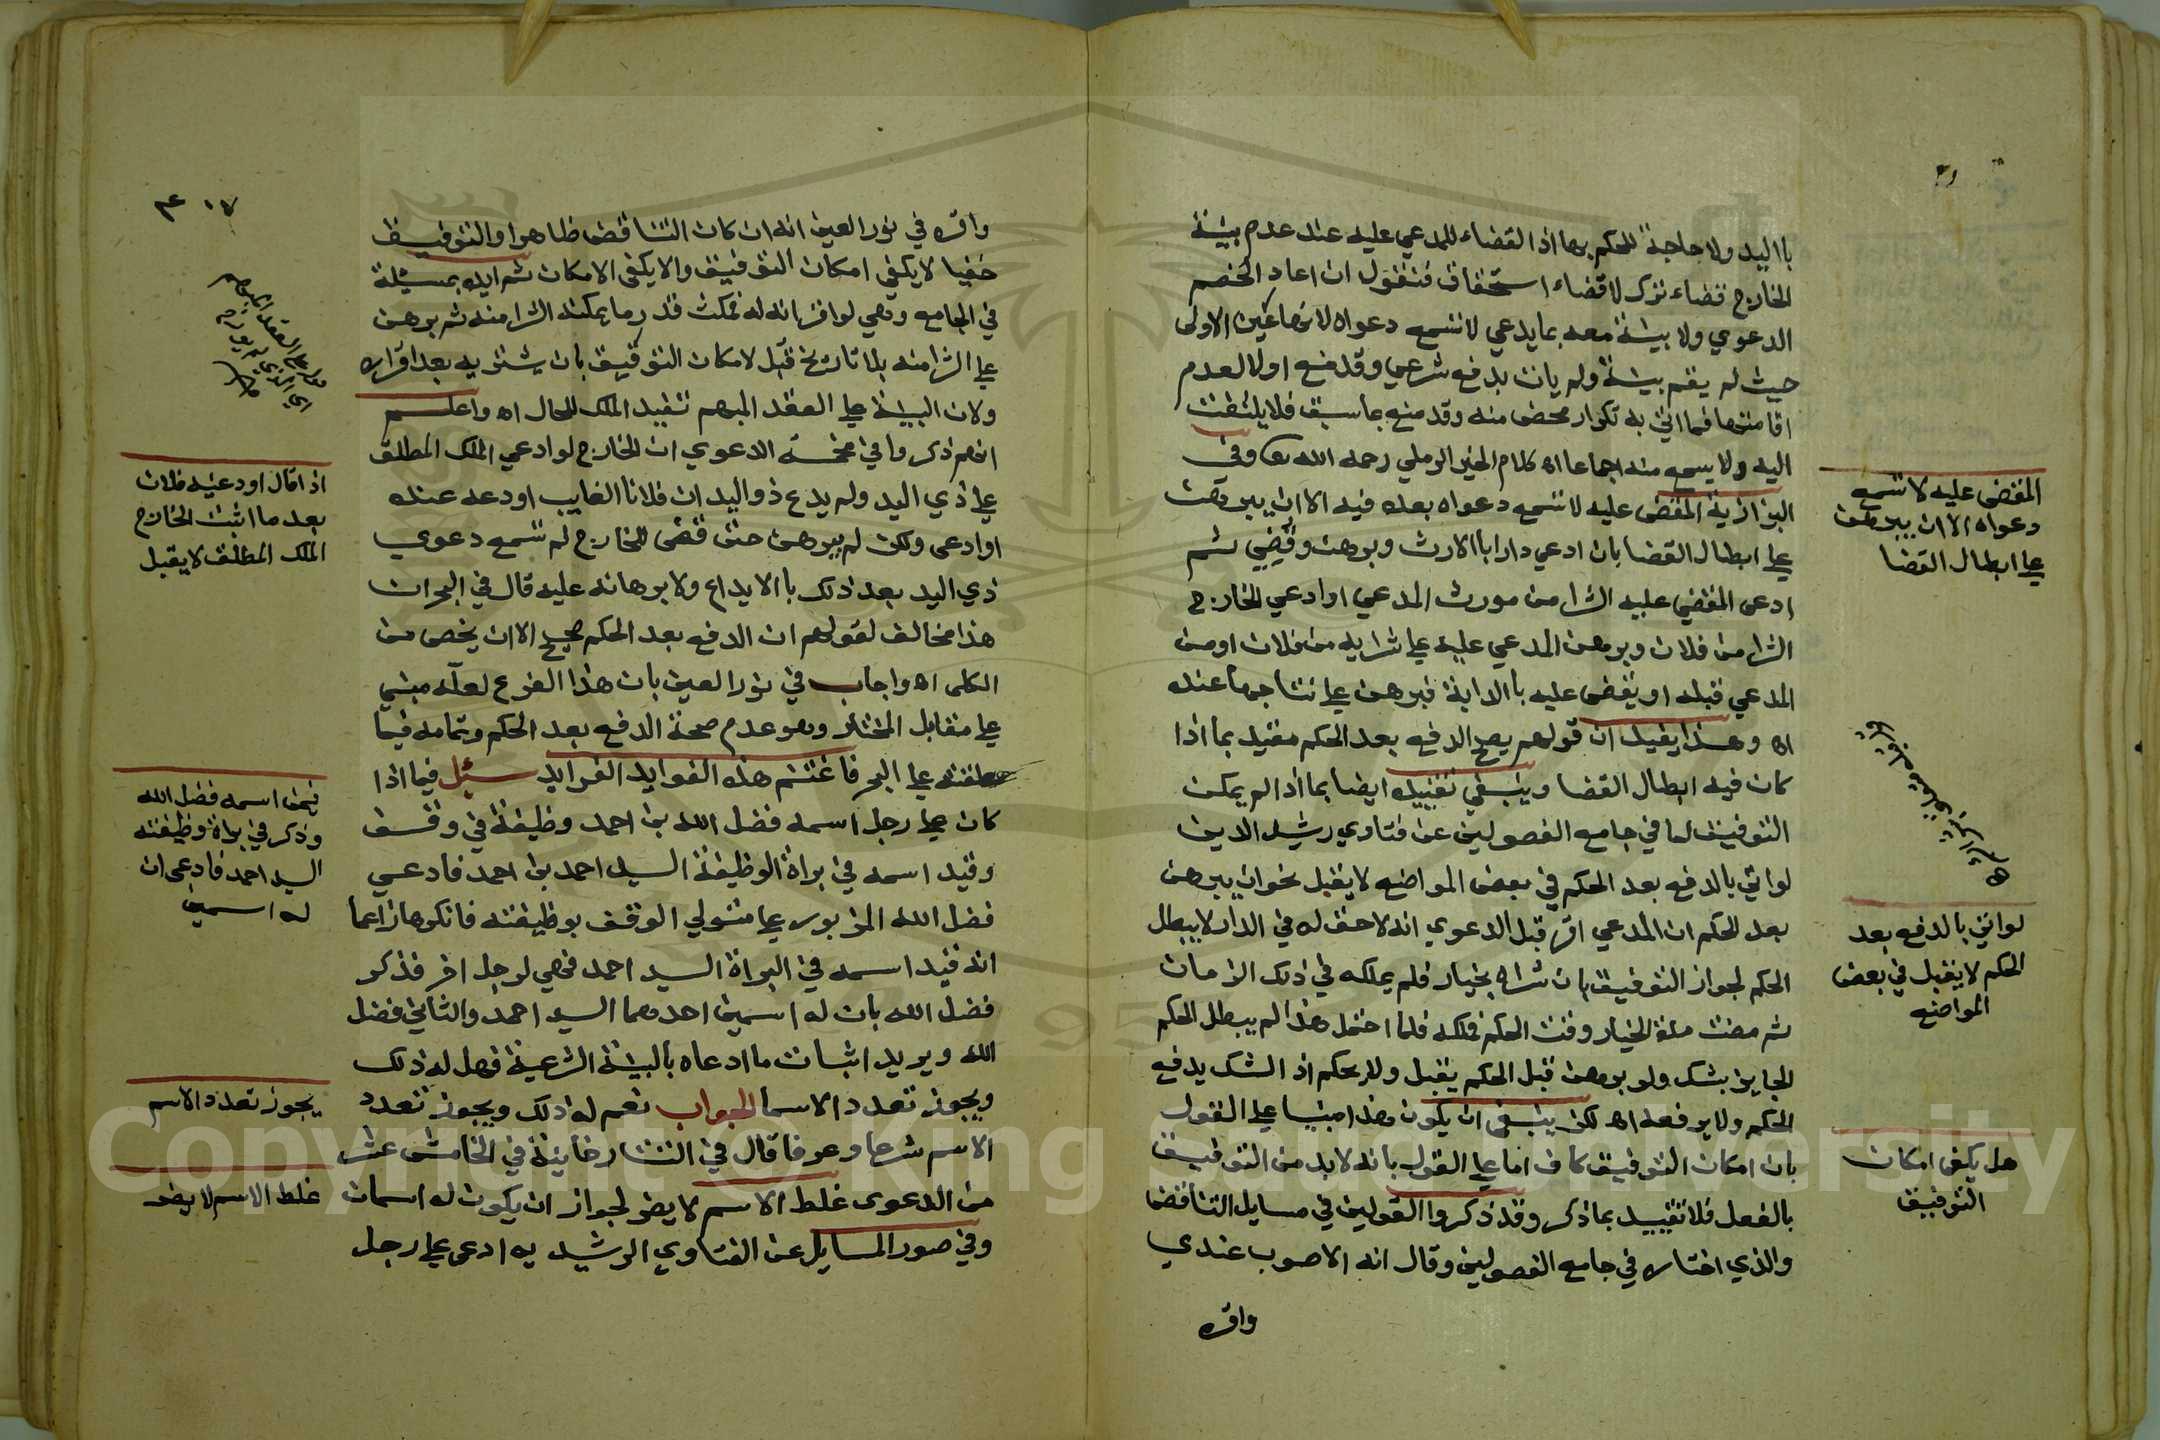 بااليد ولا حاجة للحكم بها اذ القضاء للمدعي عليه عند عدم بينة
الخارج قضاء ترك لا قضاء استحقاق فنقول ان اعاد الخصم
الدعوي ولا بينة معه بما يدعي لا تسمع دعواه لانها عين الاولى
حيث لم يقم بينة ولم يات بدفع شرعي وقد منع اولا لعدم
اقامتها فما اتي به تكرار محض منه وقد منع بما سبق فلا يلتفت
اليه ولا يسمع منه اجماعا اه كلام الخير الرملي رحمه الله تعا وفي
البزازية المقضى عليه لا تسمع دعواه بعده فيه الا ان يبرهن
علي ابطال القضا بان ادعي دارا باالارث وبرهن وقضي ثم
ادعى المقضي عليه الشرا من مورث المدعي او ادعي الخارج
الشرا من فلان وبرهن المدعي عليه علي شرايه من فلان او من
المدعي قبله او يقضى عليه باالدابة فبرهن علي نتاجها عنده
اه وهذا يفيد ان قولهم يصح الدفع بعد الحكم مقيد بما اذا
كان فيه ابطال القضا وينبغي تقييده ايضا بما اذا لم يمكن
التوفيق لما في جامع الفصولين عن فتاوي رشيد الدين
لو اتي بالدفع بعد الحكم في بعض المواضع لا يقبل نحو ان يبرهن
بعد الحكم ان المدعي اقر قبل الدعوي انه لا حق له في الدار لا يبطل
الحكم لجواز التوفيق بان شراه بخيار فلم يملكه في ذلك الزمان
ثم مضت مدة الخيار وقت الحكم فملكه فلما احتمل هذا لم يبطل الحكم
الجايز بشك ولو برهن قبل الحكم يقبل ولا يحكم اذ الشك يدفع
الحكم ولا يرفعه اه لكن ينبغى ان يكون هذا مبنيا علي القول
بان امكان التوفيق كاف اما علي القول بانه لا بد من التوفيق
بالفعل فلا تقييد بما ذكر وقد ذكروا القولين في مسايل التناقض
والذي اختاره في جامع الفصولين وقال انه الاصوب عندي
واقره
المقضى عليه لا تسمع
دعواه الا ان يبرهن
علي ابطال القضا
لو اتي بالدفع بعد
الحكم لا يقبل في بعض
المواضع
هل يكفى امكان
التوفيق
واقره في نور العين انه ان كان التناقض ظاهرا والتوفيق
خفيا لا يكفي امكان التوفيق والا يكفى الامكان ثم ايده بمسئلة
في الجامع وهي لو اقر انه له فمكث قدر ما يمكنه الشرا منه ثم برهن
علي الشرا منه بلا تاريخ قبل لامكان التوفيق بان يشتريه بعد اقراره
ولان البينة علي العقد المبهم تفيد الملك للحال اه واعلم
انهم ذكروا في مخمسة الدعوي ان الخارج لو ادعي الملك المطلق
علي ذي اليد ولم يدع ذو اليد ان فلانا الغايب اودعه عنده
او ادعى ولكن لم يبرهن حتى قضى للخارج لم تسمع دعوي
ذي اليد بعد ذلك باالايداع ولا برهانه عليه قال في البحر ان
هذا مخالف لقولهم ان الدفع بعد الحكم صحيح الا ان يخص من
الكلى اه واجاب في نور العين بان هذا الفرع لعله مبني
علي مقابل المختار وهو عدم صحة الدفع بعد الحكم وتمامه فيما
علقته علي البحر فاغتنم هذه الفوايد الفرايد سئل فيما اذا
كان علي رجل اسمه فضل الله بن احمد وظيفة في وقف
وقيد اسمه في براة الوظيفة السيد احمد بن احمد فادعي
فضل الله المزبور علي متولي الوقف بوظيفته فانكرها زاعما
انه قيد اسمه في البراة السيد احمد فهي لرجل اخر فذكر
فضل الله بان له اسمين احدهما السيد احمد والثاني فضل
الله ويريد اثبات ما ادعاه بالبينة الشرعية فهل له ذلك
ويجوز تعدد الاسما الجواب نعم له ذلك ويجوز تعدد
الاسم شرعا وعرفا قال في التتارخانية في الخامس عشر
من الدعوى غلط الاسم لا يضر لجواز ان يكون له اسمان
وفي صور المسايل عن الفتاوي الرشيديه ادعى علي رجل
اذا قال اودعنيه فلان
بعد ما اثبت الخارج
الملك المطلق لا يقبل
فيمن اسمه فضل الله
وذكر في براة وظيفته
السيد احمد فادعى ان
له اسمين
يجوز تعدد الاسم
غلط الاسم لا يضر
Copyright © King Saud University
1957